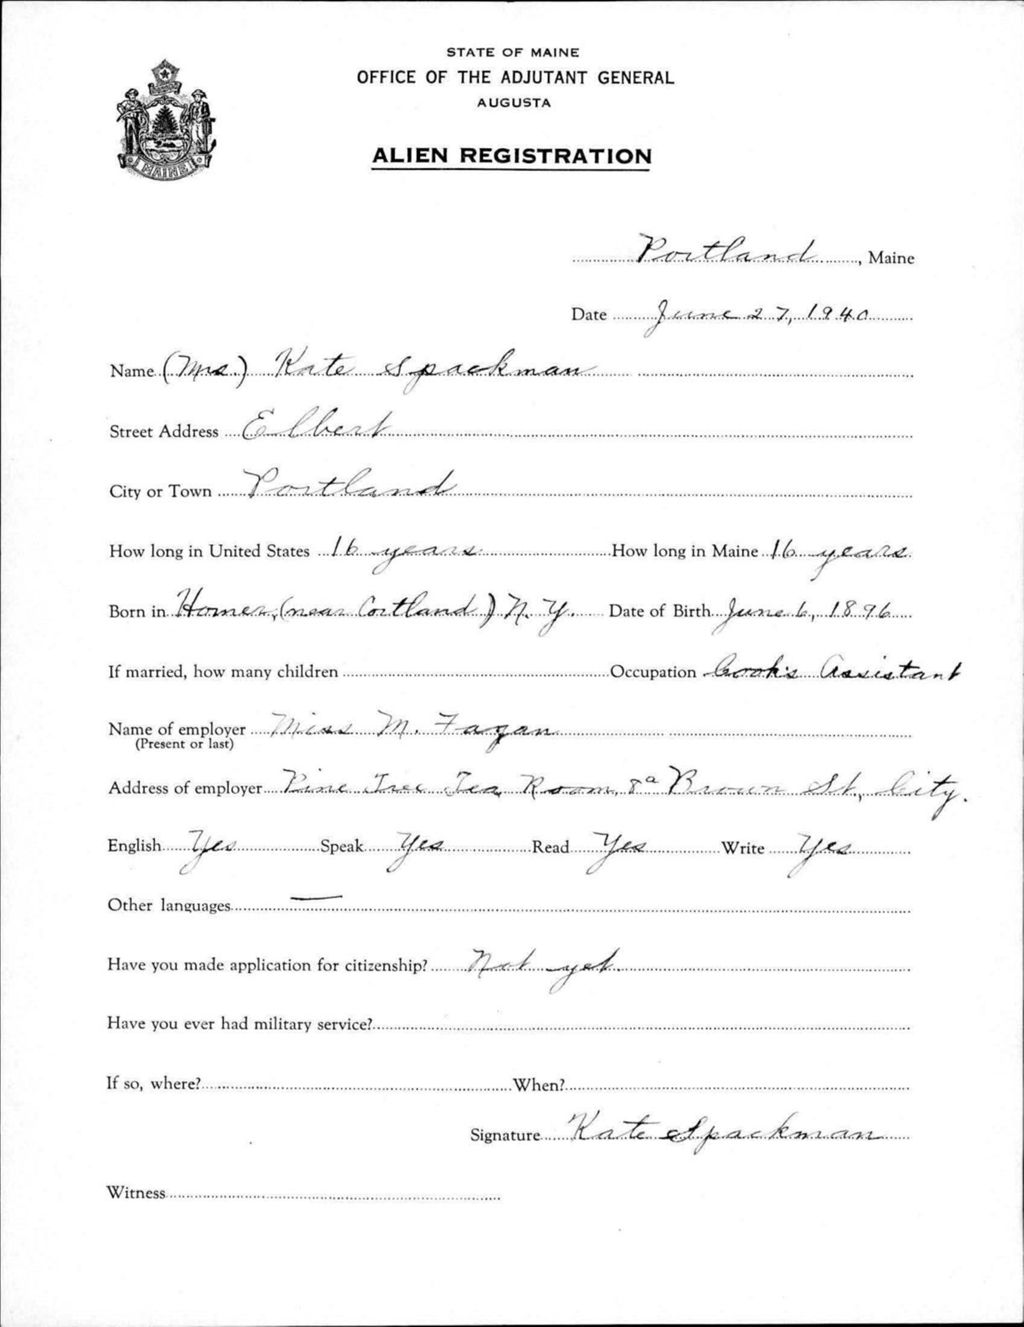 STATE OF MAINE
OFFICE OF THE ADJUTANT GENERAL
AUGUSTA
ALIEN REGISTRATION
MAINE
Portland, Maine
Date June 27, 1940
Name (Mrs.) Kate Spackman
Street Address Elbert
City or Town Portland
How long in United States 16 years How long in Maine 16 years
Born in Homer, (near Cortland) N. Y. Date of Birth June 6, 1896
If married, how many children Occupation Cook's Assistant
Name of employer Miss M. Fagan
(Present or last)
Address of employer Pine Tree Tea Room, 8a Brown St., City.
English Yes Speak Yes Read Yes Write Yes
Other languages —
Have you made application for citizenship? Not yet.
Have you ever had military service?
If so, where? When?
Signature Kate Spackman
Witness